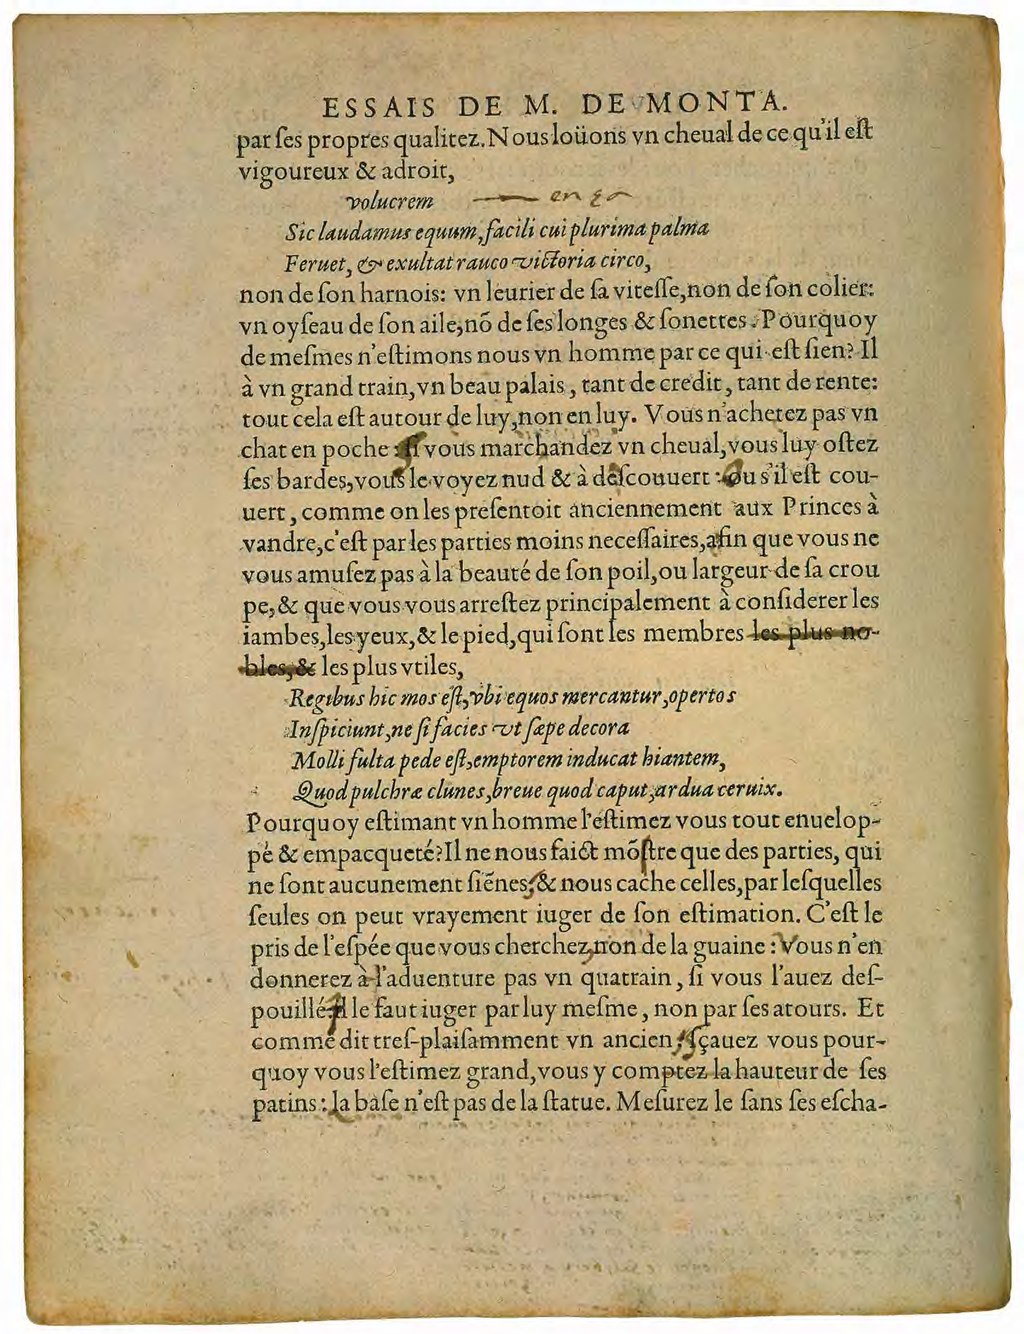 ESSAIS DE M. DE MONTA.
par ſes propres qualitez. Nous loüons vn cheual de ce qu'il eſt
vigoureux & adroit,
volucrem
Sic laudamus equum, facili cui plurima palma
Feruet, & exultat rauco victoria circo,
non de ſon harnois: vn leurier de ſa viteſſe, non de ſon colier:
vn oyſeau de ſon aile, nō de ſes longes & ſonettes. Pourquoy
de meſmes n'eſtimons nous vn homme par ce qui eſt ſien? Il
à vn grand train, vn beau palais, tant de credit, tant de rente:
tout cela eſt autour de luy, non en luy. Vous n'achetez pas vn
chat en poche: ſi vous marchandez vn cheual, vous luy oſtez
ſes bardes, vous le voyez nud & à deſcouuert: Ou s'il eſt cou-
uert, comme on les preſentoit anciennement aux Princes à
vandre, c'eſt par les parties moins neceſſaires, afin que vous ne
vous amuſez pas à la beauté de ſon poil, ou largeur de ſa crou
pe, & que vous vous arreſtez principalement à conſiderer les
iambes, les yeux, & le pied, qui ſont les membres les plus no-
bles, & les plus vtiles,
Regibus hic mos eſt, vbi equos mercantur, opertos
Inſpiciunt, ne ſi facies vt ſæpe decora
Molli fulta pede eſt, emptorem inducat hiantem,
Quod pulchræ clunes, breue quod caput, ardua ceruix.
Pourquoy eſtimant vn homme l'eſtimez vous tout enuelop-
pé & empacqueté? Il ne nous faict mōſtre que des parties, qui
ne ſont aucunement ſiēnes: & nous cache celles, par leſquelles
ſeules on peut vrayement iuger de ſon eſtimation. C'eſt le
pris de l'eſpée que vous cherchez, non de la guaine: Vous n'en
donnerez à l'aduenture pas vn quatrain, ſi vous l'auez deſ-
pouillé. Il le faut iuger par luy meſme, non par ſes atours. Et
comme dit treſ-plaiſamment vn ancien, ſçauez vous pour-
quoy vous l'eſtimez grand, vous y comptez la hauteur de ſes
patins: la baſe n'eſt pas de la ſtatue. Meſurez le ſans ſes eſcha-